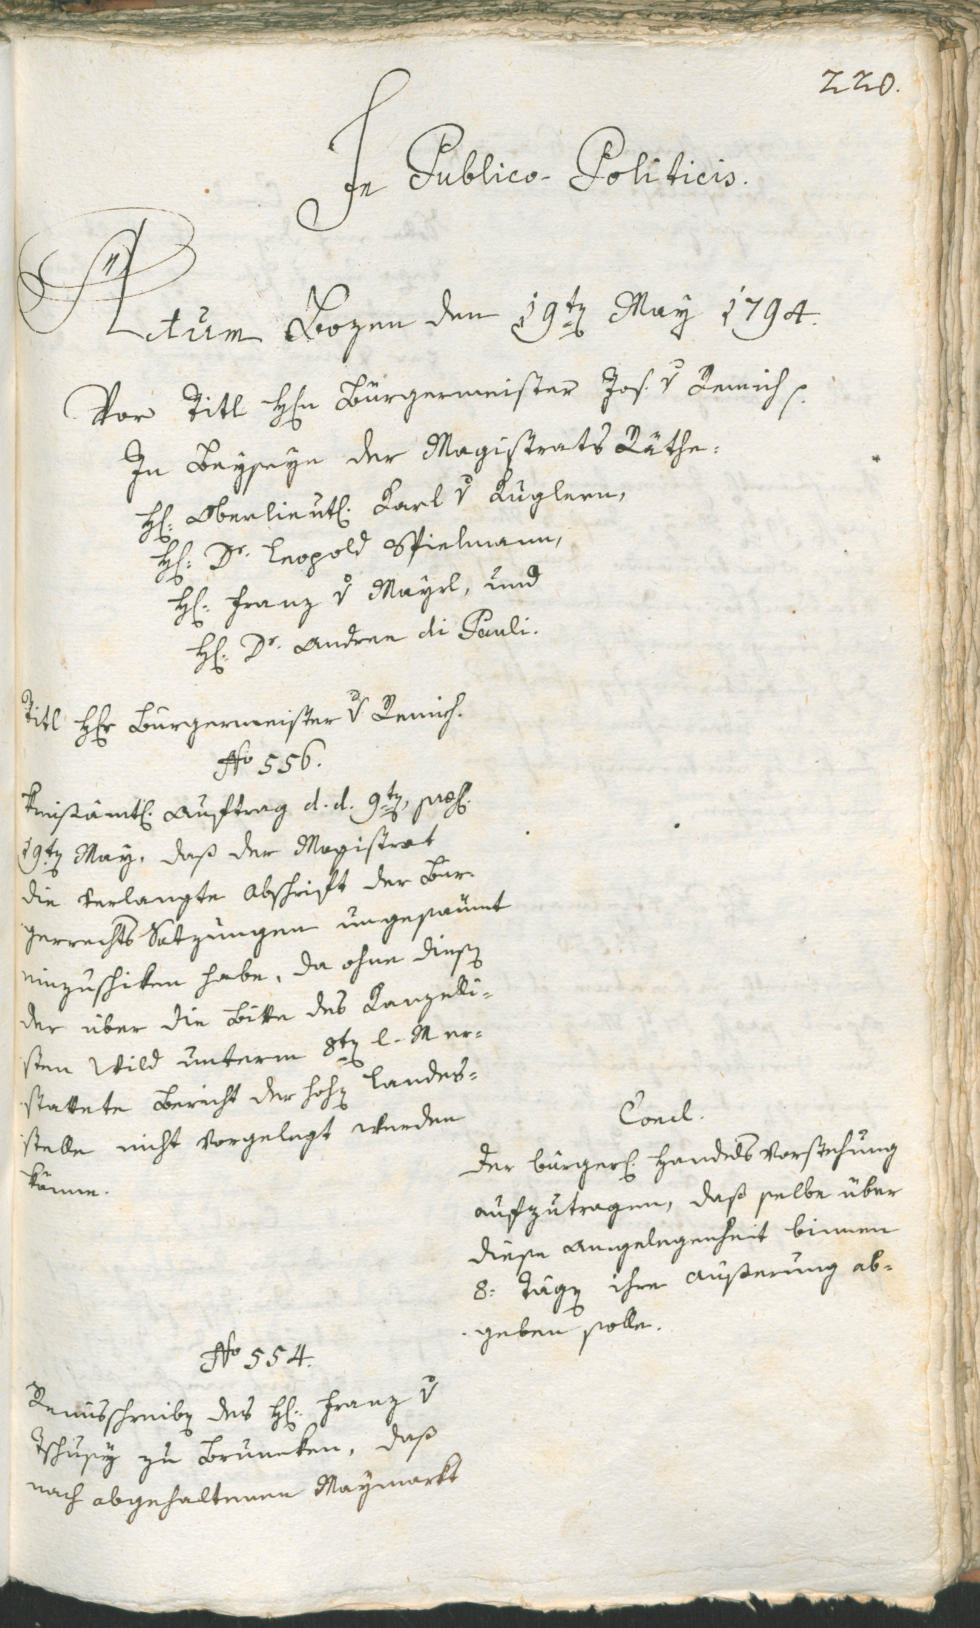 220.
In Publico-Politicis.
Actum Bozen den 19tn May 1794.
Vor Titl H[errn] Bürgermeister Jos. v Remich p.
In Beyseyn der Magistrats Räthe:
H: Oberlieut. Karl v Kuglern,
H: Dr. Leopold Spielmann,
H: Franz v Mayrl, und
H: Dr. Andree di Pauli.
Titl Herr Bürgermeister v Remich.
No 556.
Kreisämtl. Auftrag d. d. 9tn, præs.
19tn May, daß der Magistrat
die verlangte Abschrift der Bür-
gerrechts Satzungen ungesäumt
einzuschiken habe, da ohne diesen
der über die Bitte des Kanzelli-
sten Wild unterm 8tn l. M er-
stattete Bericht der hohen Landes-
stelle nicht vorgelegt werden
könne.
Concl.
Der bürgerl. Handels Vorstehung
aufzutragen, daß selbe über
diese Angelegenheit binnen
8: Tägen ihre Äußerung ab-
geben solle.
No 554.
des H: Franz v
Tschusy zu Bruneken, daß
nach abgehaltenen Maymarkt